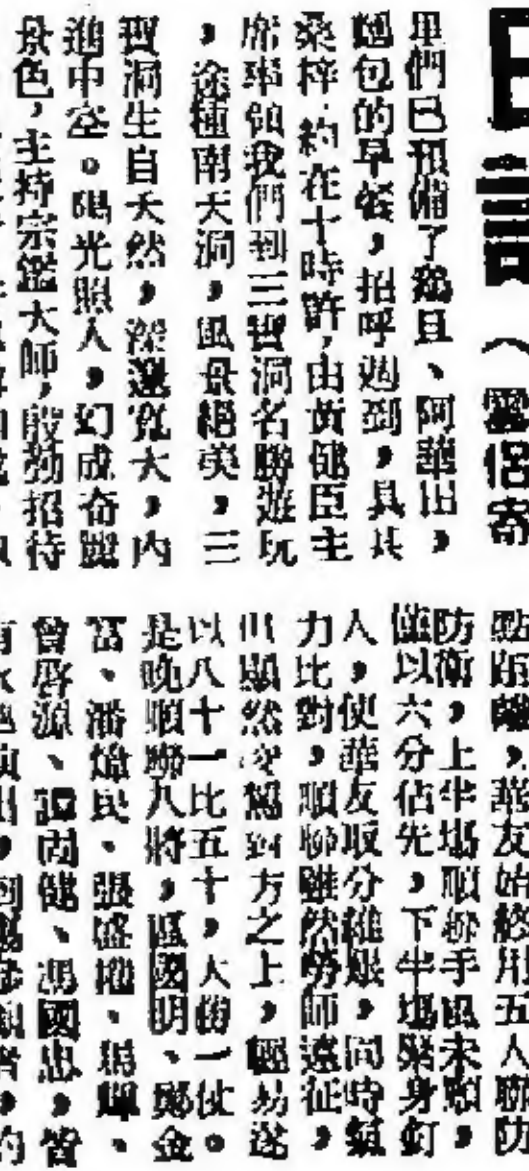 日記（雲侶寄
里們已預備了鷄且、阿華田，
麵包的早餐，招呼週到，具共
桑梓，約在十時許，由黃健臣主
席率領我們到三寶洞名勝遊玩
，途種南天洞，風景絕美，三
寶洞生自天然，深邃寬大，內
進中空。陽光照人，幻成奇麗
景色，主持宗鑑大師，殷勤招待
點距離，華友始終用五人聯防
防衛，上半場順聯手風未順，
僅以六分佔先，下半場緊身釘
人，使華友取分維艱，同時氣
力比對，順聯雖然勞師遠征，
但顯然凌駕對方之上，輕易遂
以八十一比五十，大勝一仗。
是晚順聯八將，區國明、鄭金
富、潘煒民、張盛權、馮輝、
曾啓源、譚尚健、馮國忠，皆